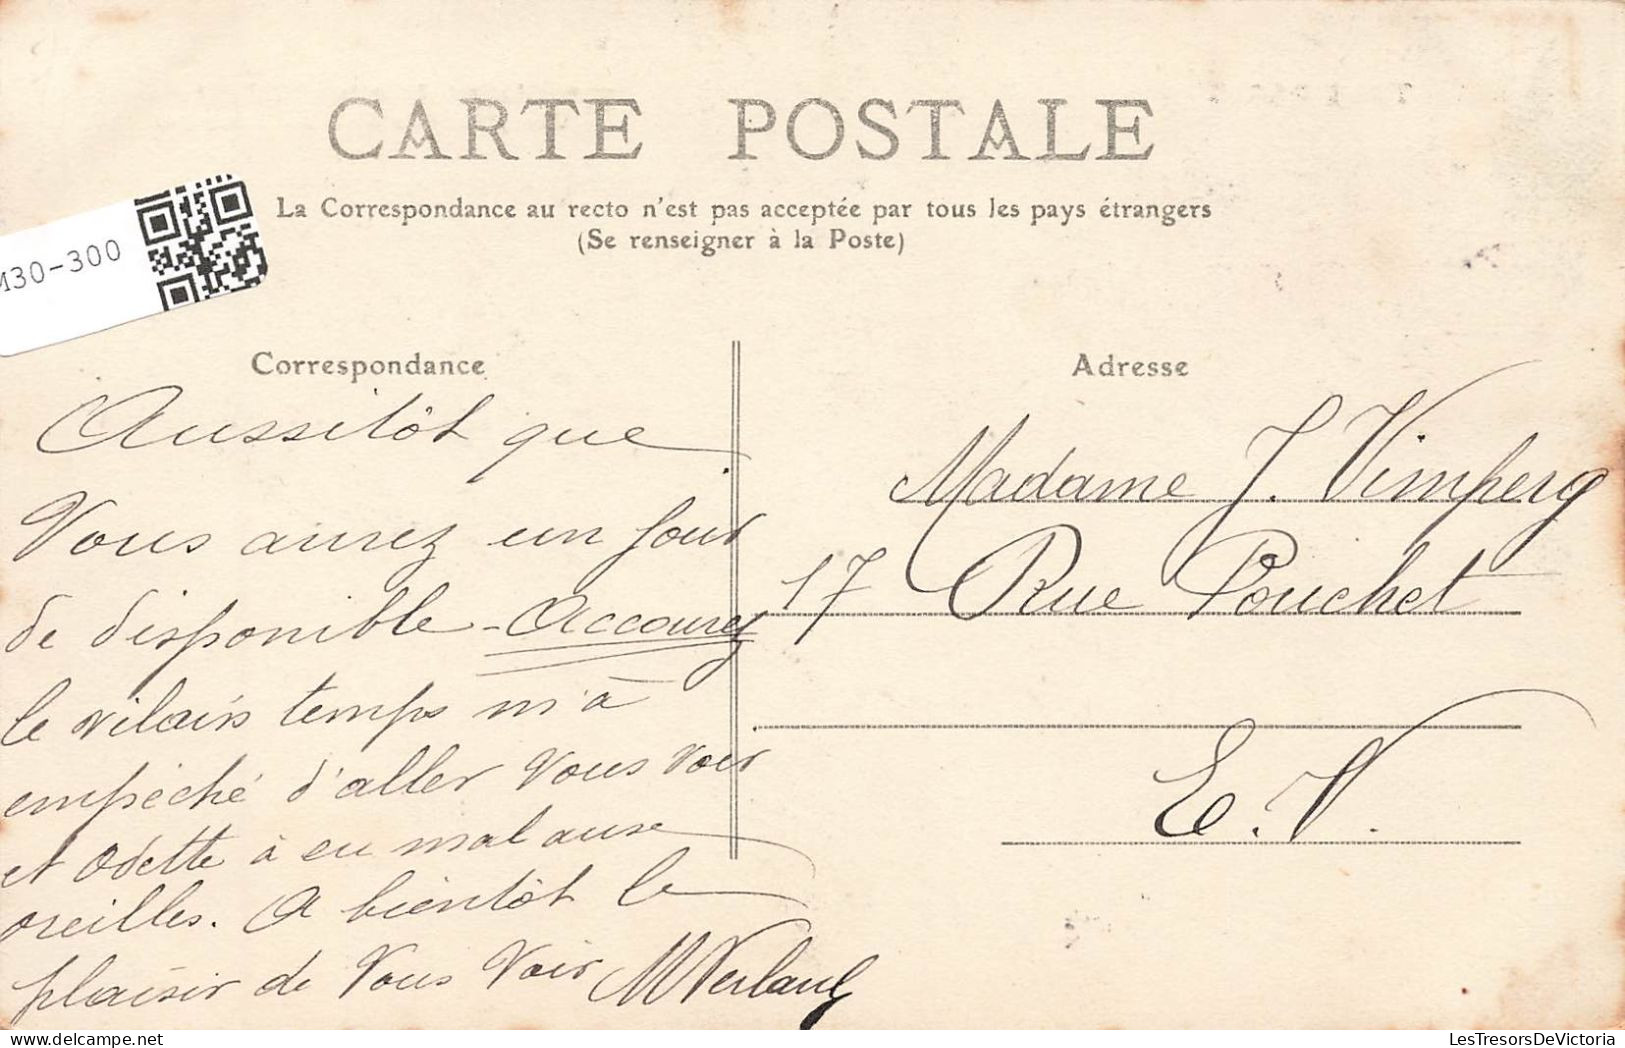 CARTE POSTALE
La Correspondance au recto n'est pas acceptée par tous les pays étrangers
(Se renseigner à la Poste)
30-300
Correspondance
Aussitôt que
Vous aurez un jour
de disponible - Accourez
le vilain temps m'à
empêché d'aller Vous Voir
et Odette à eu mal aux
oreilles. A bientôt le
plaisir de Vous Voir
Adresse
Madame J. Vimperg
17 Rue Pouchet
E. V.
LesTresorsDeVictoria